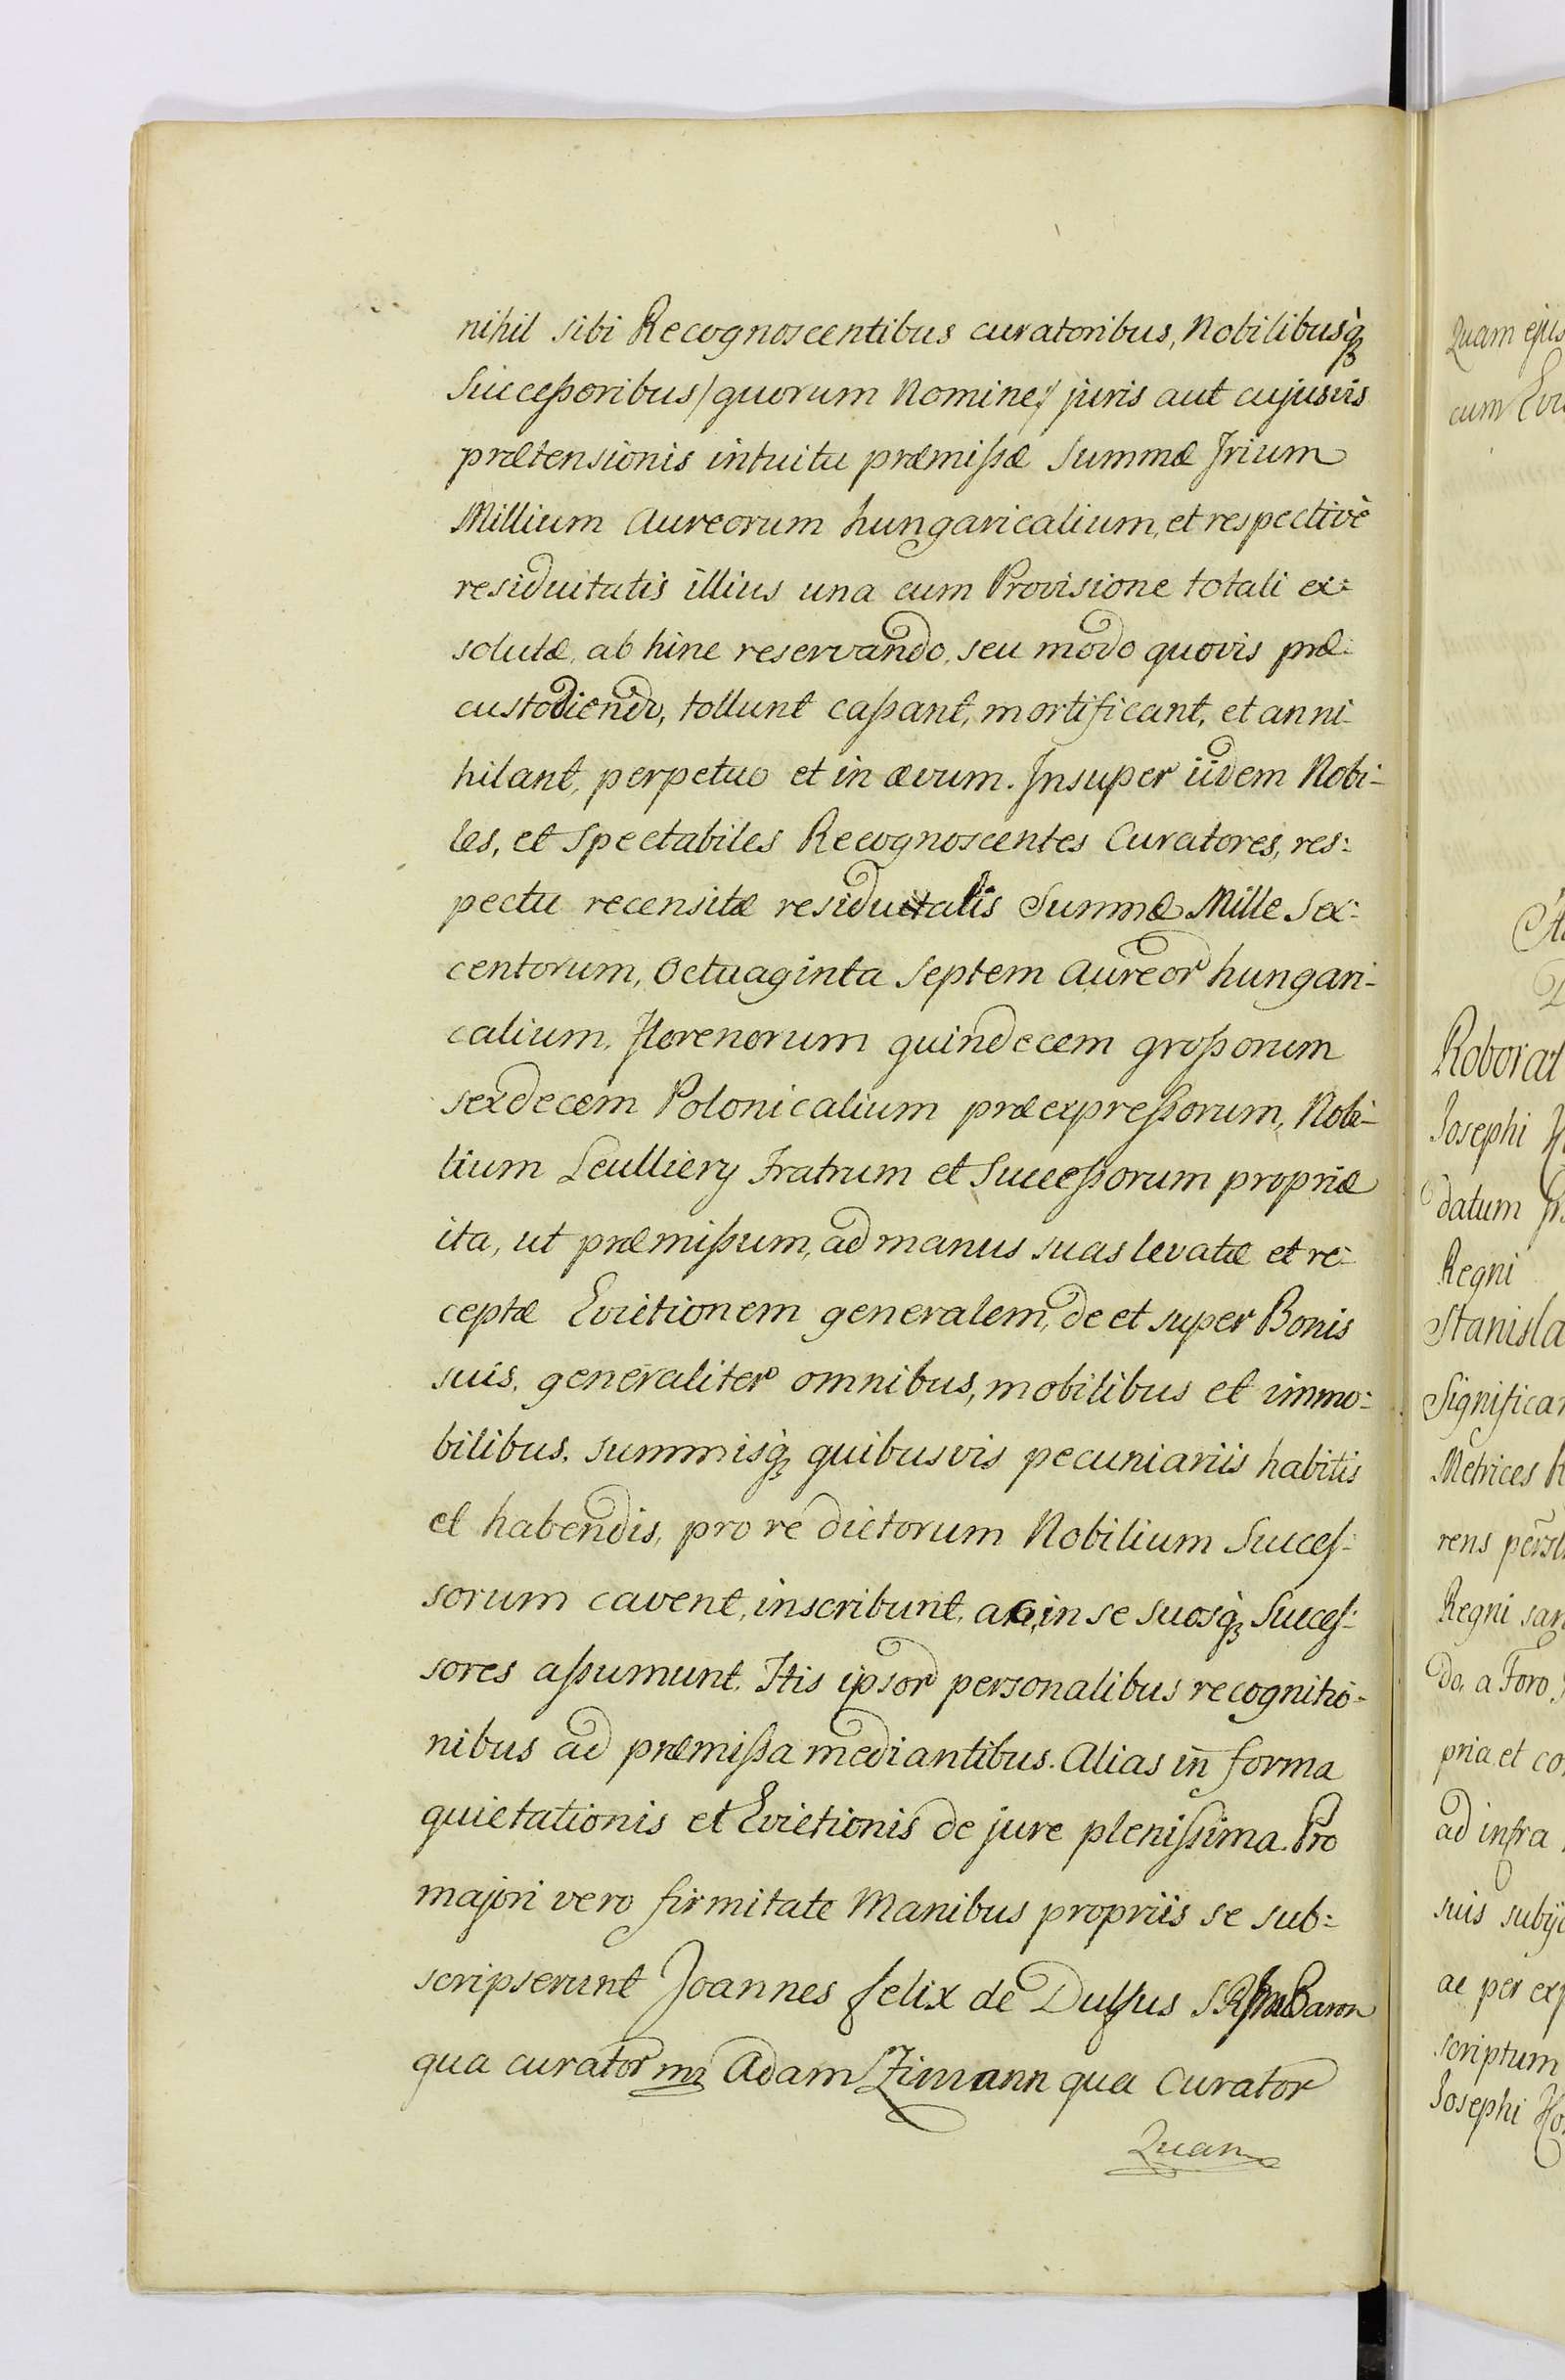 nihil sibi Recognoscentibus curatoribus, Nobilibusq̃
Successoribus /quorum Nomine/ juris aut cujusvis
prætensionis intuitu præmissæ Summæ Trium
Millium Aureorum hungaricalium, et respectivè
residuitatis illius una cum Provisione totali ex:
solutæ, ab hinc reservando, seu modo quovis præ:
custodiendo, tollunt cassant, mortificant, et anni-
hilant, perpetuo et in ævum. Insuper iidem Nobi-
les, et Spectabiles Recognoscentes Curatores, res:
pectu recensitæ residuitatis Summæ Mille Sex:
centorum, Octuaginta Septem Aureor hungari-
calium, florenorum quindecem grossorum
sexdecem Polonicalium præexpressorum, Nobi-
lium Leulliery Fratrum et Successorum propriæ
ita, ut præmissum, ad manus suas levatæ et re:
ceptæ Evictionem generalem, de et super Bonis
suis, generaliter omnibus, mobilibus et immo:
bilibus, summisq̃ quibusvis pecuniariis habitis
et habendis, pro re dictorum Nobilium Succes:
sorum cavent, inscribunt, ac, in se suosq̃ Succes:
sores assumunt. Htis ipsor personalibus recognitio-
nibus ad præmissa mediantibus. Alias in forma
quietationis et Evictionis de jure plenissima. Pro
majori vero firmitate Manibus propriis se sub:
scripserunt Joannes felix de Dulfus Baron
qua curator mp Adam Zimann qua Curator
Quam
Quam ejus
cum
Roborat
Josephi
datum
Regni
Stanisla
Significa
Metrices
rens
Regni
do, a Foro
pria et co
ad infra
suis
ac per
scriptum
Josephi